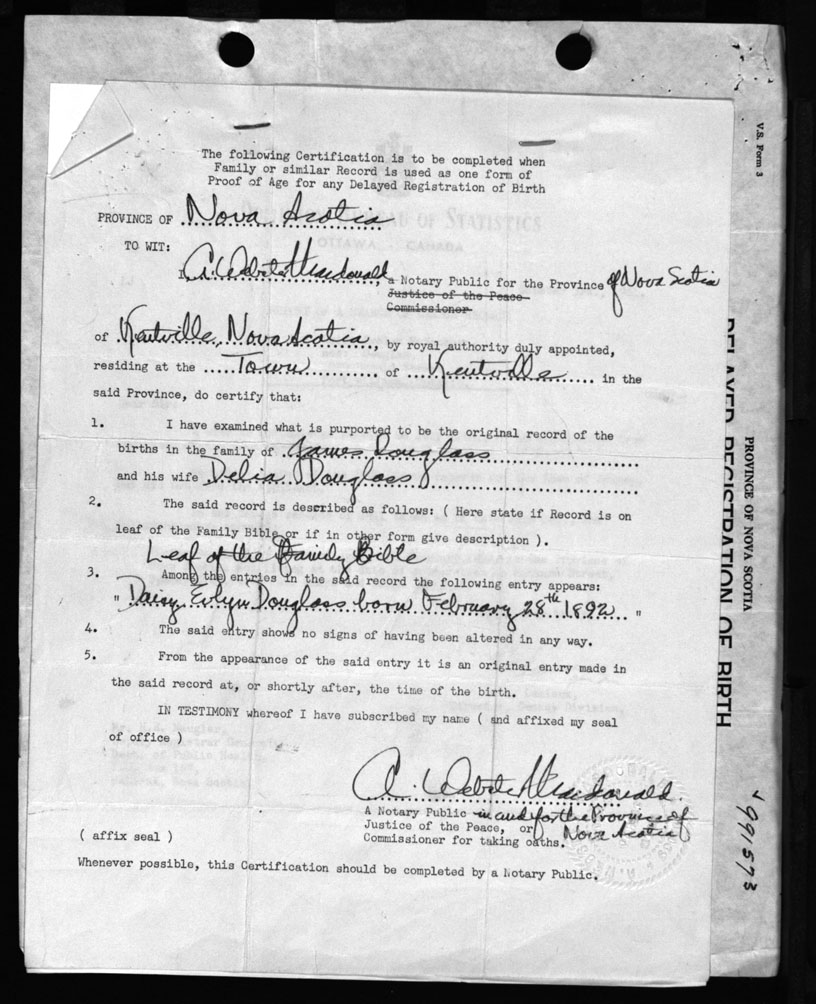 The following Certification is to be completed when
Family or similar Record is used as one form of
Proof of Age for any Delayed Registration of Birth
PROVINCE OF Nova Scotia
TO WIT:
I, A. Webster Macdonald, a Notary Public for the Province of Nova Scotia
Justice of the Peace
Commissioner
of Kentville, Nova Scotia, by royal authority duly appointed,
residing at the Town of Kentville in the
said Province, do certify that:
1. I have examined what is purported to be the original record of the
births in the family of James Douglass
and his wife Delia Douglass
2. The said record is described as follows: ( Here state if Record is on
leaf of the Family Bible or if in other form give description ).
Leaf of the Family Bible
3. Among the entries in the said record the following entry appears:
" Daisy Evlyn Douglass born February 28th 1892 "
4. The said entry shows no signs of having been altered in any way.
5. From the appearance of the said entry it is an original entry made in
the said record at, or shortly after, the time of the birth.
IN TESTIMONY whereof I have subscribed my name ( and affixed my seal
of office )
A. Webster Macdonald.
A Notary Public in and for the Province of
Justice of the Peace, or Nova Scotia
Commissioner for taking oaths.
( affix seal )
Whenever possible, this Certification should be completed by a Notary Public.
V.S. Form 3
PROVINCE OF NOVA SCOTIA
DELAYED REGISTRATION OF BIRTH
991573
OF STATISTICS
OTTAWA - CANADA